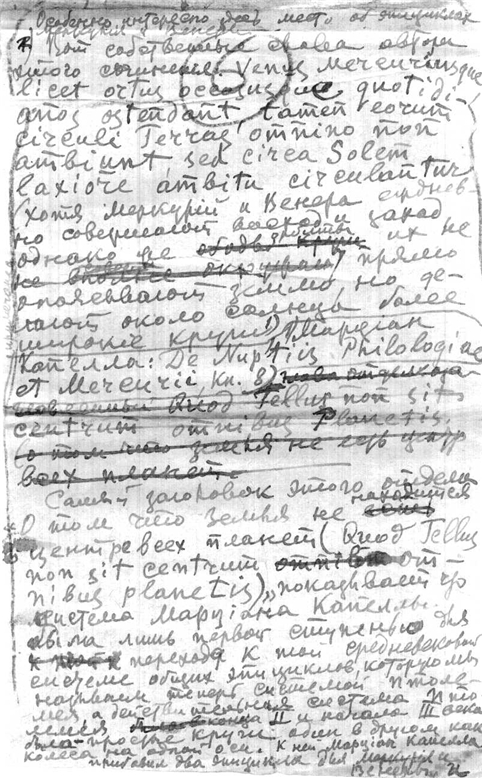 Особенно интересно здесь место об эпициклах
Меркурия и Венеры
Вот собственные слова автора
этого сочинения. Venus Mercurius que
licet ortus occasus que quotidi-
anos ostendant, tamen eorum
circuli Terras omnino non
ambiunt sed circa Solem
laxiore ambitu circulantur
(хотя Меркурий и Венера ежднев-
но совершают восход и заход
однако не их не
прямо
опоясывают землю, но де-
лают около солнца более
широкие круги) (Марциан
Капелла: De Nuptiis Philologiae
et Mercurii, кн. 8)
Quod Tellus non sit
centrum omnibus Planetis.
(о том что земля не есть центр
всех планет.
Самый заголовок этого отдела
О том что земля не находится
центре всех планет (Quod Tellus
non sit centrum om-
nibus planetis), показывает что
система Марциана Капеллы
была лишь первой ступенью для
перехода к той средневековой
системе общих эпициклов, которую мы
называем теперь системой Птоле-
мея, а действительная система Пто-
лемея II и начала III века
была просто круги один в другом как
колеса на одной оси. К ней Марциан Капелла
прибавил два эпицикла для Меркурия и
Венеры